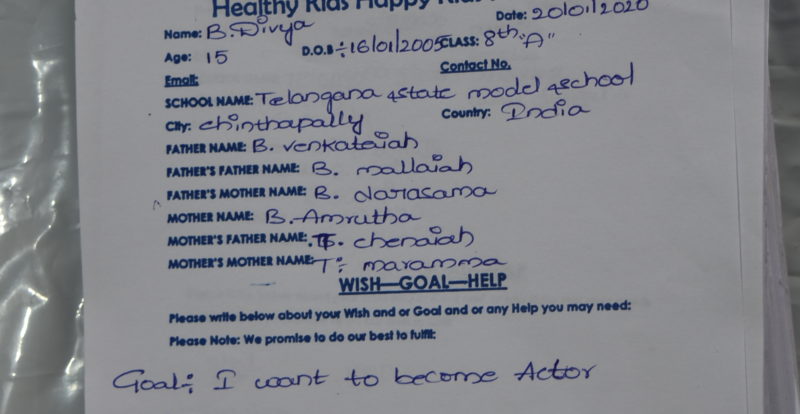 Healthy Kids Happy Kids
Name: B. Divya Date: 20/01/2020
Age: 15 D.O.B ÷ 16/01/2005 CLASS: 8th "A"
Email: Contact No.
SCHOOL NAME: Telangana state model school
City: chinthapally Country: India
FATHER NAME: B. venkataiah
FATHER'S FATHER NAME: B. mallaiah
FATHER'S MOTHER NAME: B. narasama
MOTHER NAME: B. Amrutha
MOTHER'S FATHER NAME: T. chenaiah
MOTHER'S MOTHER NAME: T: maramma
WISH—GOAL—HELP
Please write below about your Wish and or Goal and or any Help you may need:
Please Note: We promise to do our best to fulfil:
Goal: I want to become Actor